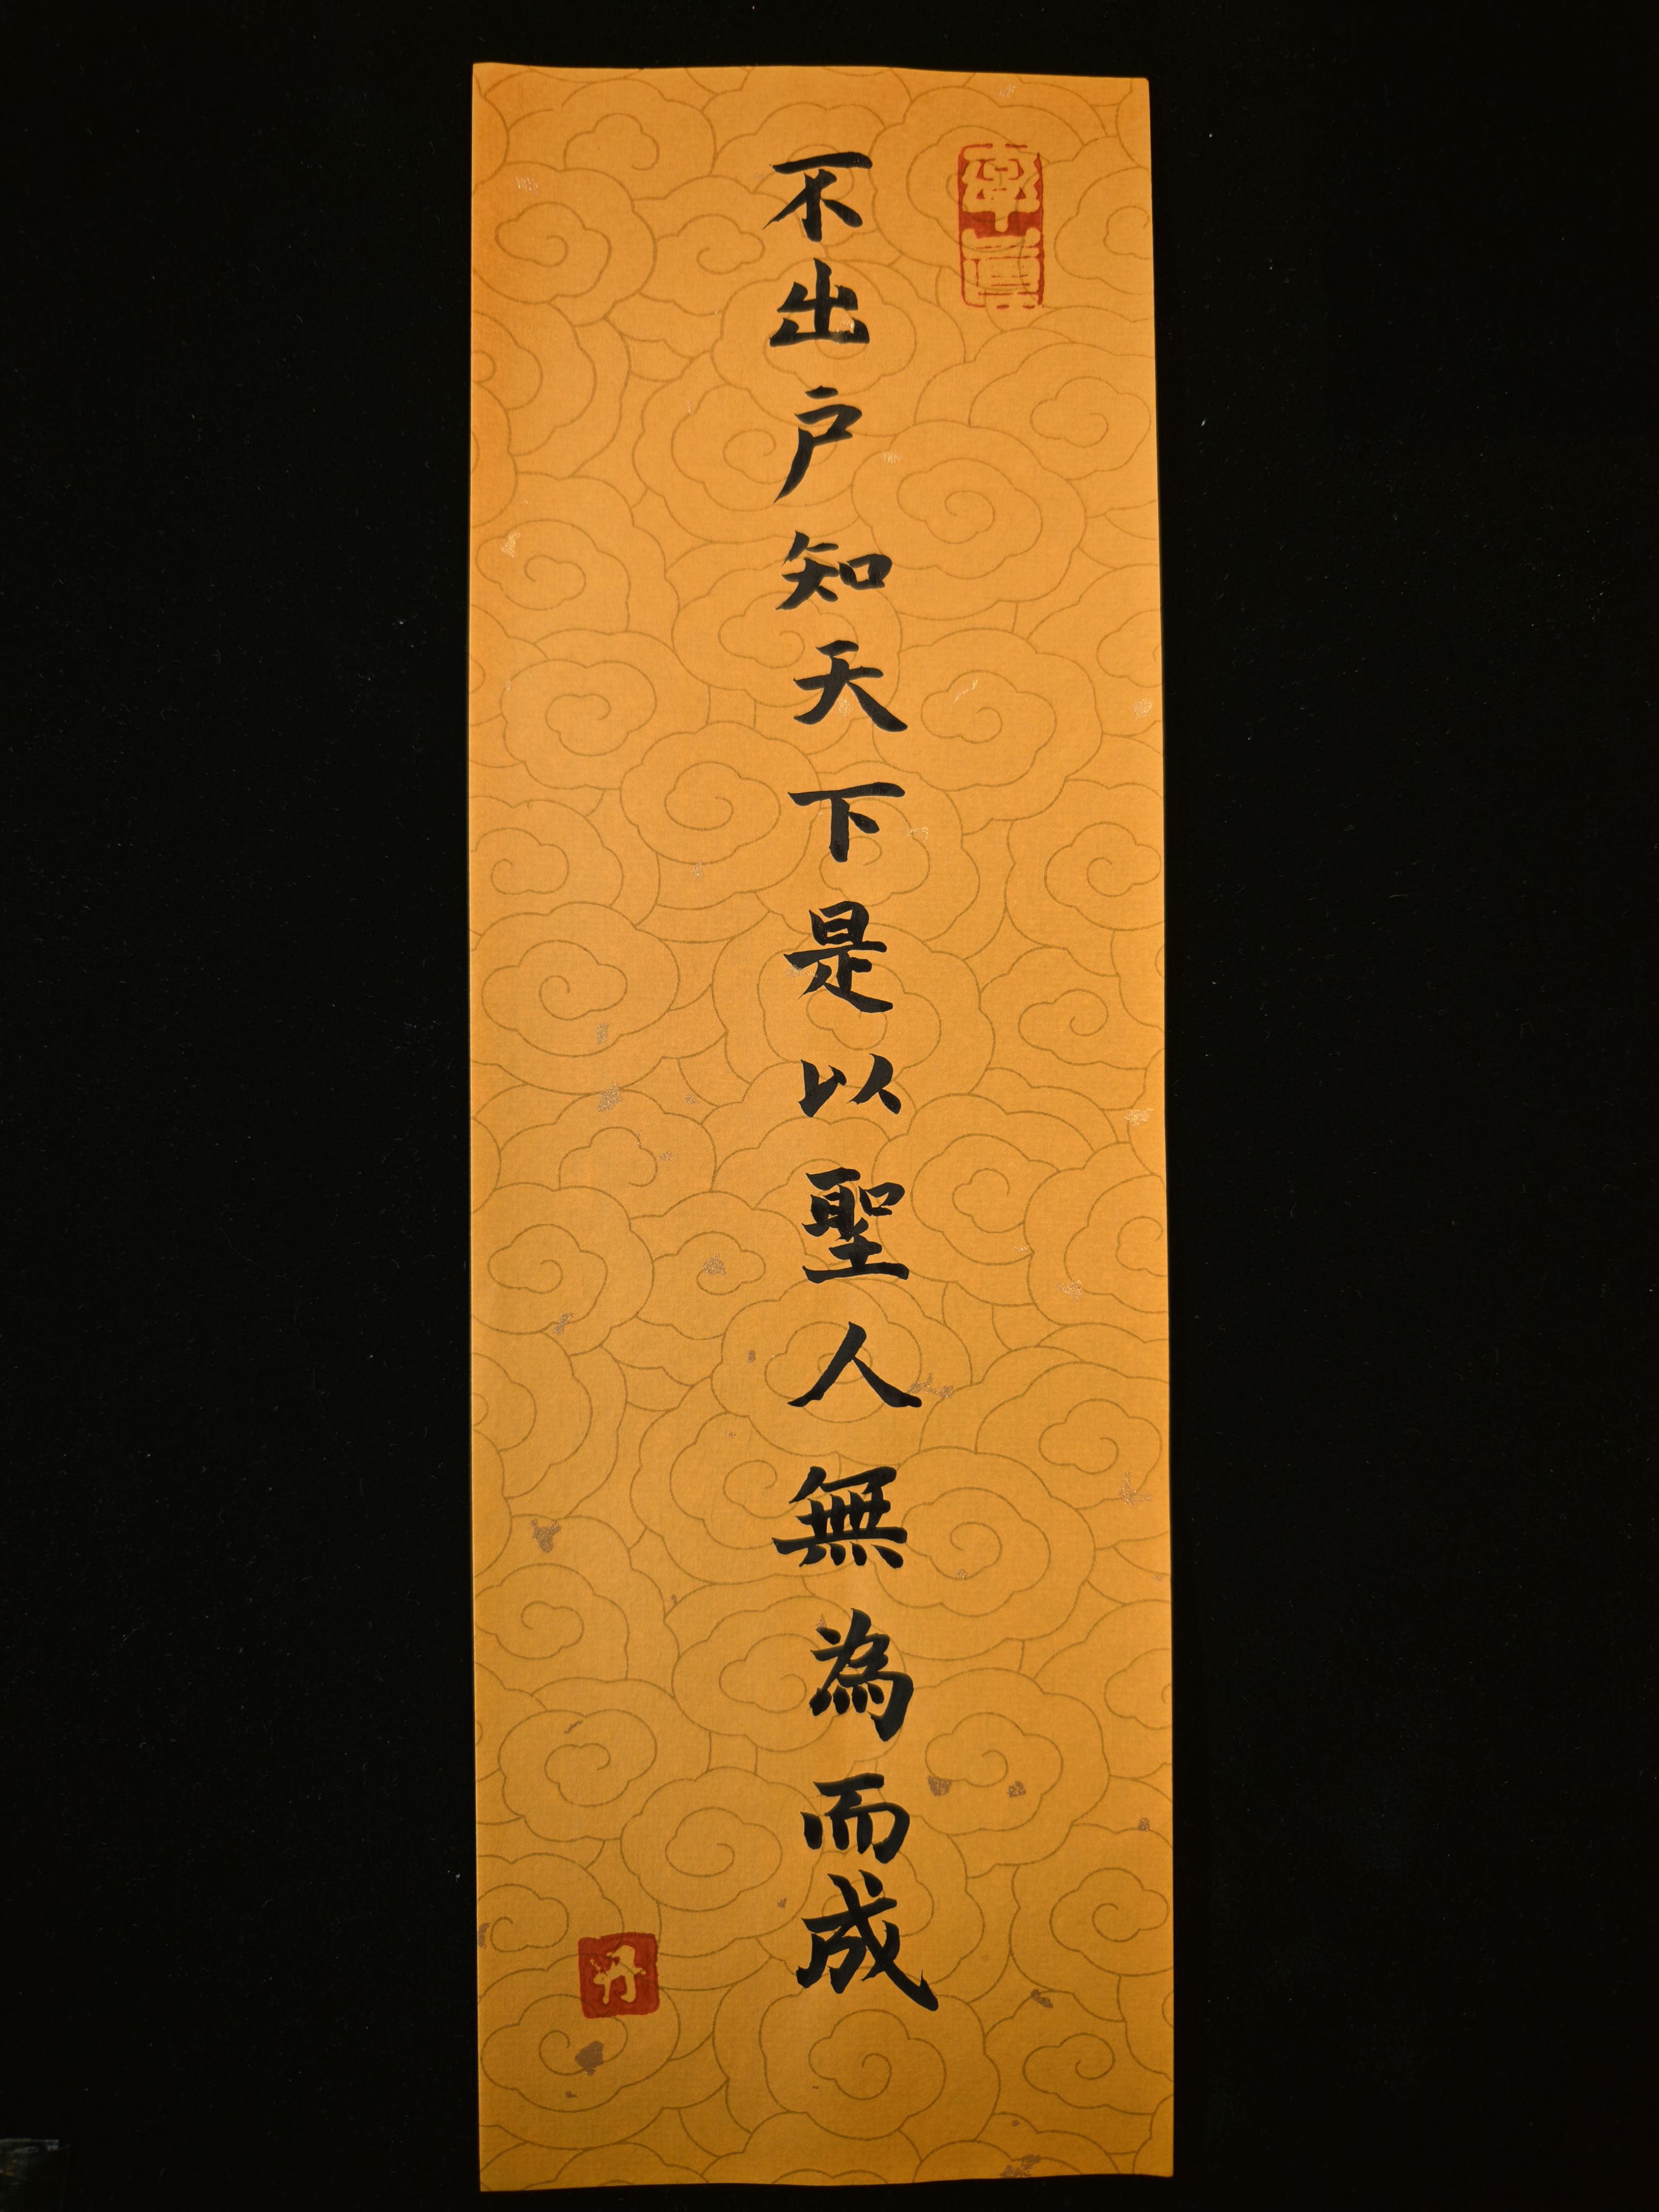 率真
不出户知天下是以聖人無為而成
丹